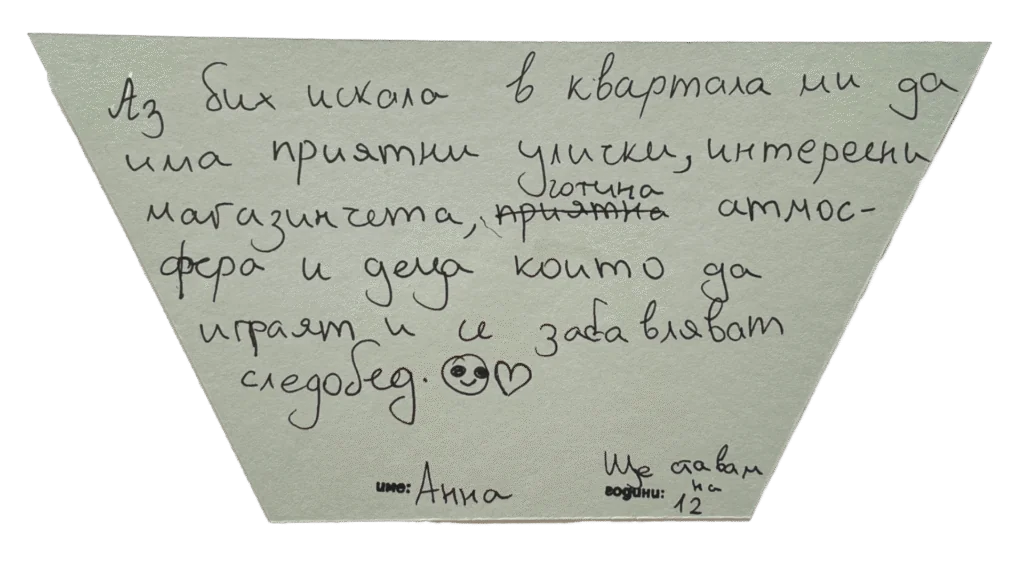 Аз бих искала в квартала ми да
има приятни улички, интересни
магазинчета, приятна готина атмос-
фера и деца които да
играят и се забавляват
следобед.
име: Анна
години: Ще ставам на 12